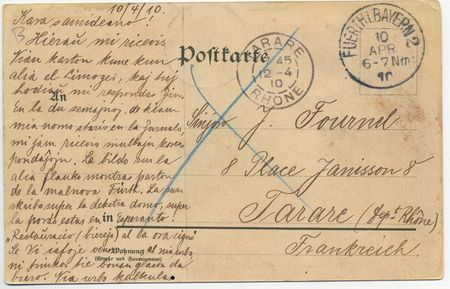 10/4/10.
Kara samideano!
Hieraŭ mi ricevis
Vian karton kune kun
alia el Limoges, kaj tuj
hodiaŭ mi respondas ĝin.
En la du semajnoj, de kiam
mia nomo estas en la Ĵurnalo
mi jam ricevis multajn kores-
pondaĵojn. La bildo sur la
alia flanko montras parton
de la malnova Fürth. La sur-
skribo super la dekstra domo, super
la pordo estas en Esperanto:
"Restoracio (bierejo) al la ora cigno"
Se Vi iafoje venos al nia urbo
ni trinkos tie bonan glason da
biero. Via urbo
Postkarte
An
in
Wohnung
(Straße und Hausnummer)
TARARE
12-4
10
RHÔNE
FUERTH I. BAYERN 2
10
APR
6-7 Nm
10
Sinjoro J. Fournel
8 Place Janisson 8
Tarare (Dept. Rhône)
Frankreich.